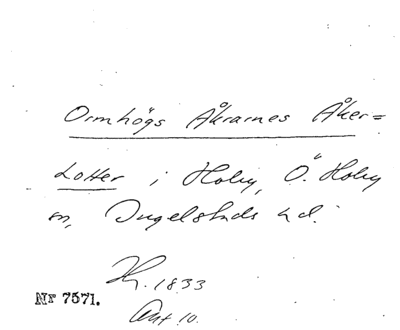 Ormhögs Åkrarnes Åker=
Lotter i Hoby, Ö. Hoby
sn, Ingelstads hd.
H. 1833
Akt 10.
Nr 7571.